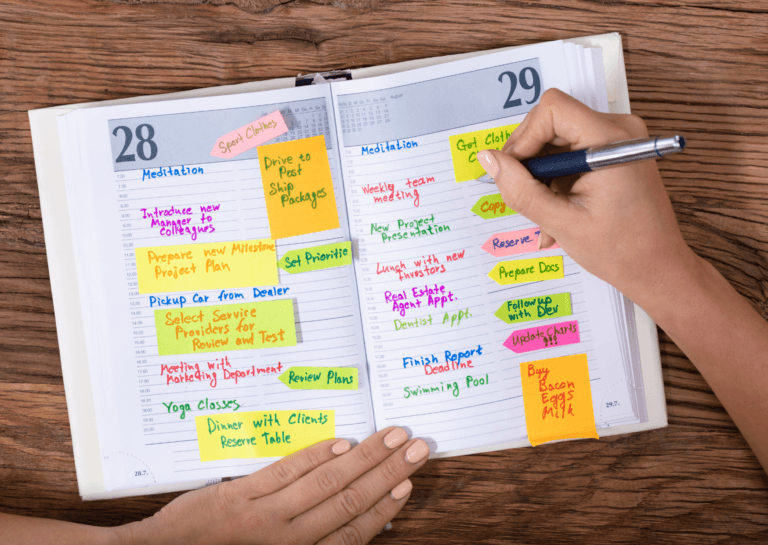 28
Sport Clothes
Meditation
Drive to
Post
Ship
Packages
Introduce new
Manager to
Colleagues
Prepare new Milestone
Project Plan
Set Prioritie
Pickup Car from Dealer
Select Service
Providers for
Review and Test
Meeting with
Marketing Department
Review Plans
Yoga Classes
Dinner with Clients
Reserve Table
28.7.
August
29
Meditation
Get Clothes
Weekly team
meeting
Copy
New Project
Presentation
Reserve
Lunch with new
Investors
Prepare Docs
Real Estate
Agent Appt.
Followup
with Dev
Dentist Appt.
Update Charts
!!!
Finish Report
Deadline
Buy
Bacon
Eggs
Milk
Swimming Pool
29.7.